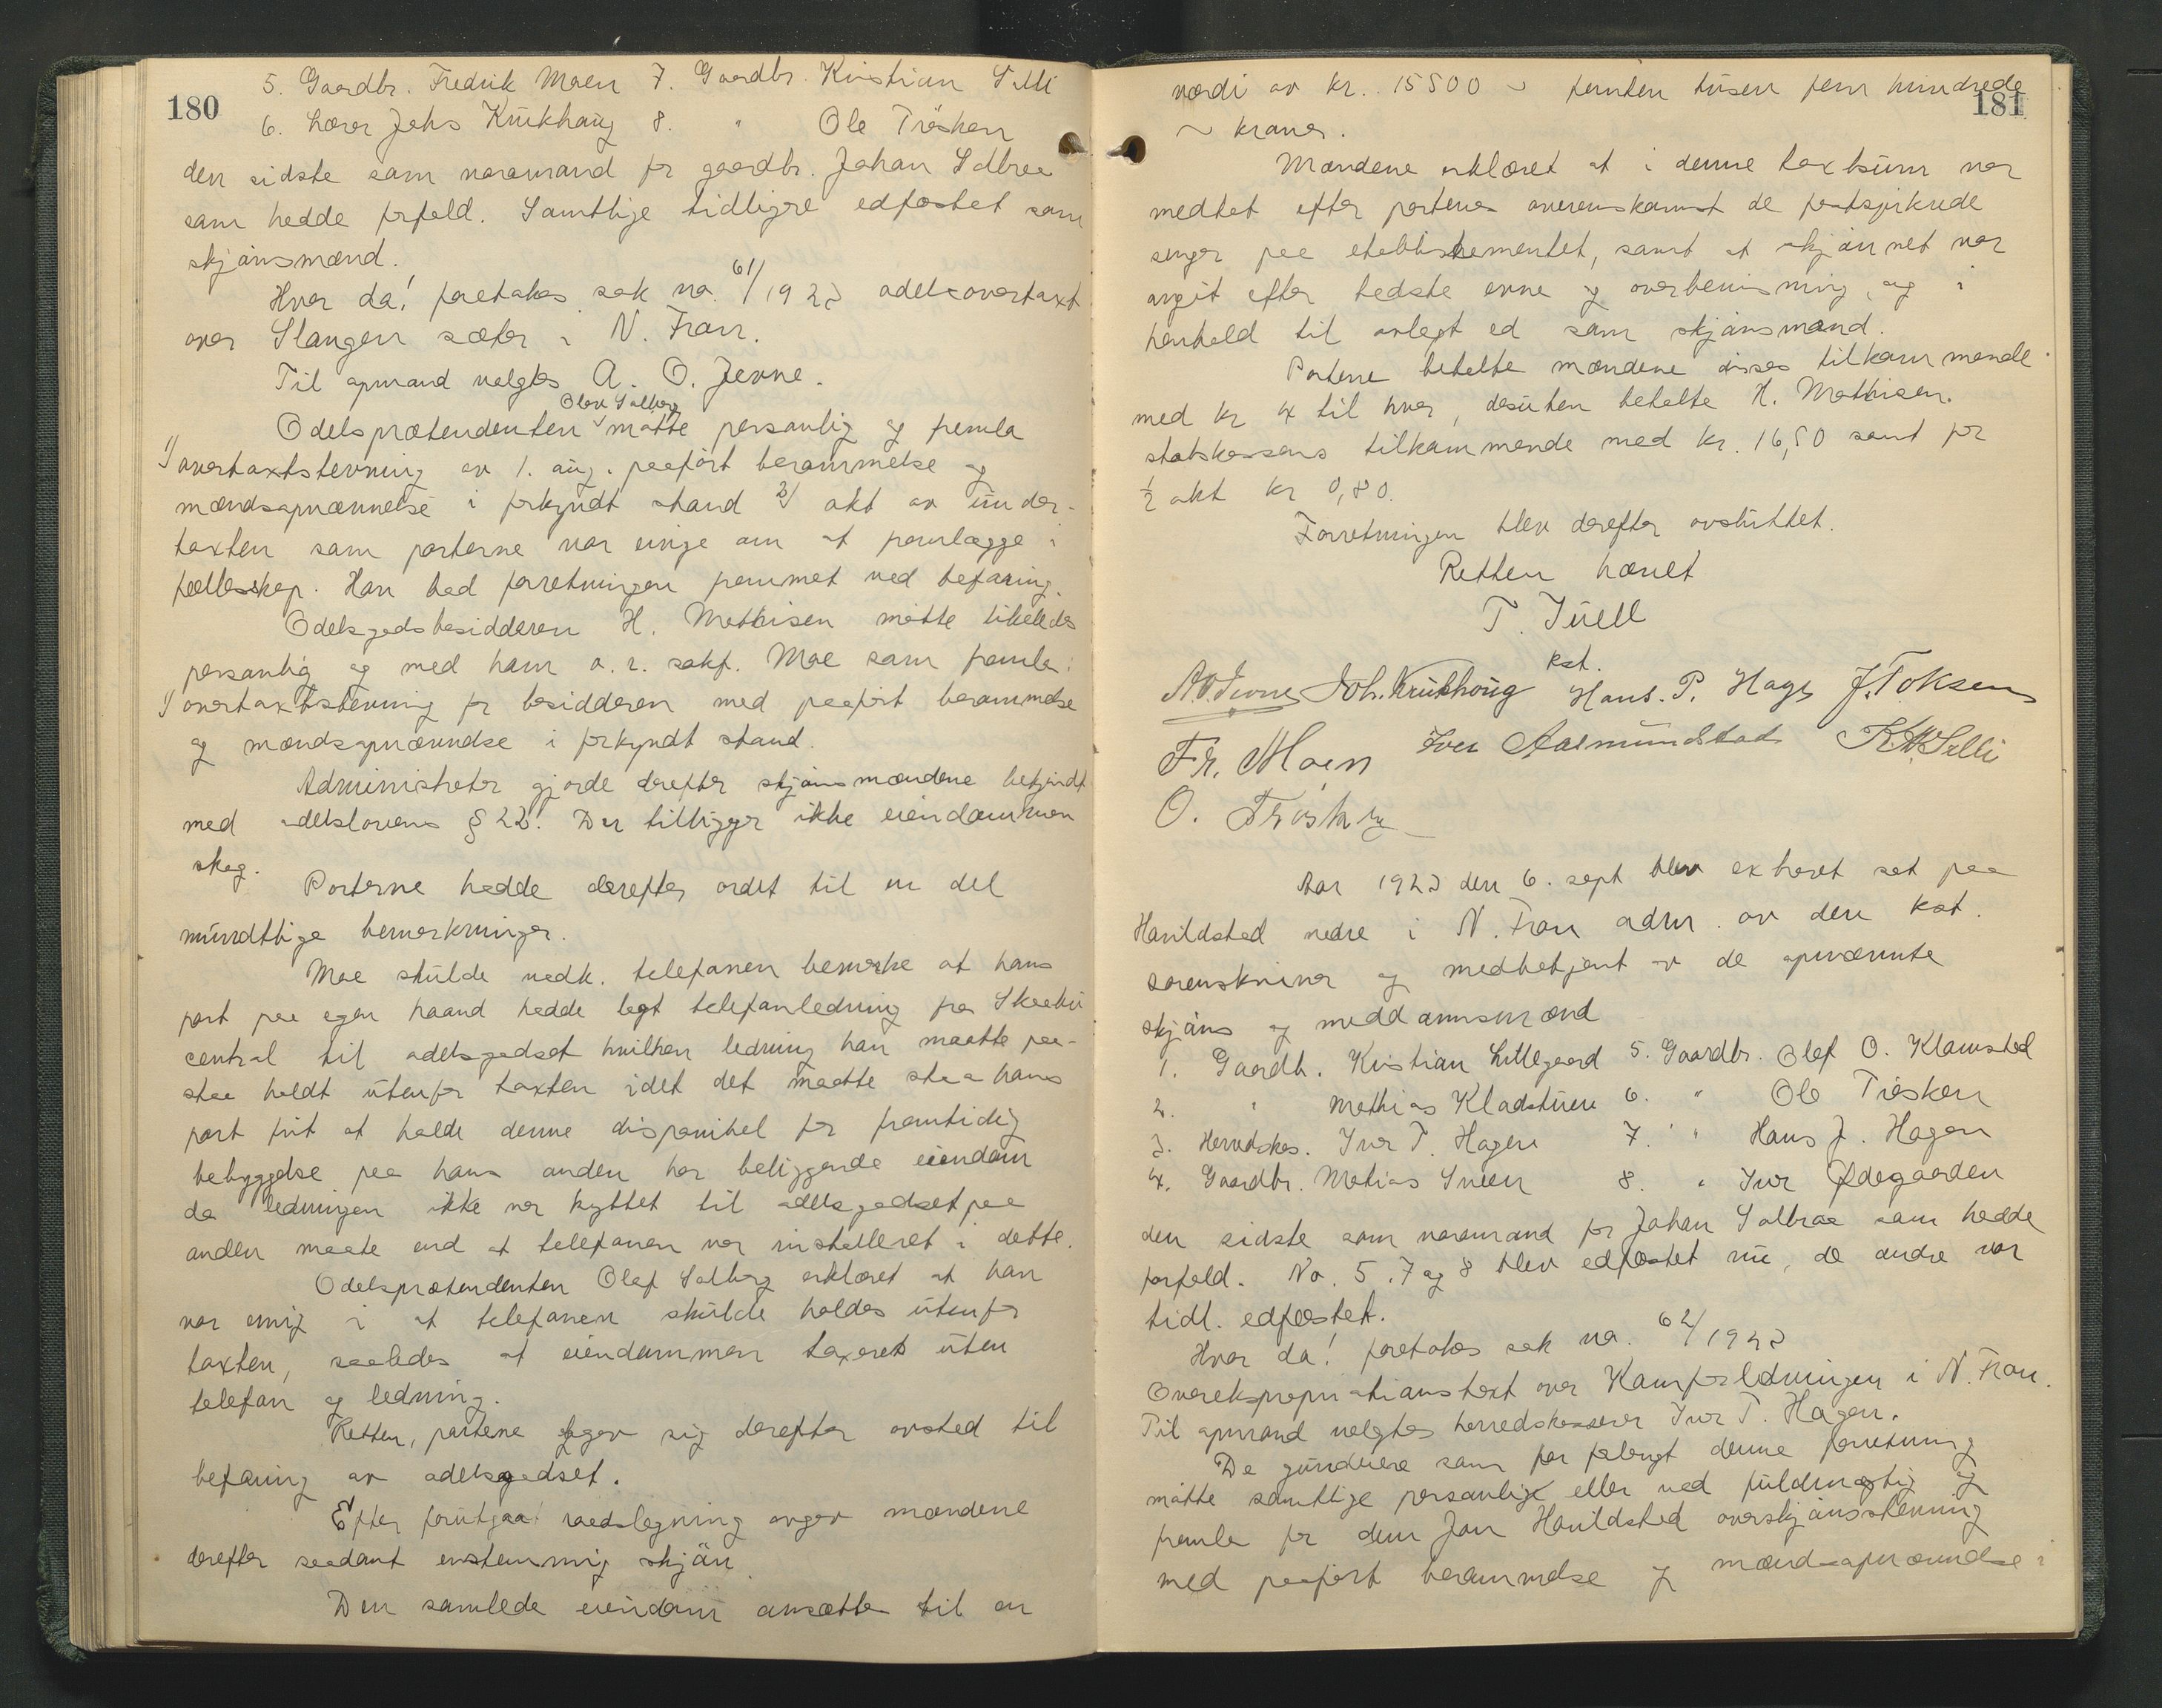 180
5. Gaardbr. Fredrik Moen 7. Gaardbr. Kristian Selli
6. Lærer Johs Krukhaug 8. " Ole Trøsken
den sidste som varamand for gaardbr. Johan Solbraa
som hadde forfald. Samtlige tidligere edfæstet som
skjønsmænd.
Hvor da! foretokes sak no. 61/1923 odelsovertaxt
over Slangen sæter i N. Fron.
Til opmand valgtes A. O. Jevne.
Odelsprætendenten Olav Solberg møtte personlig og fremla
1) overtaxtstevning av 1. aug. paaført berammelse og
mændsopnævnelse i forkyndt stand 2) akt av under-
taxten som parterne var enige om at fremlægge i
fællesskap. Han bad forretningen fremmet ved befaring.
Odelsgodsbesidderen H. Mathisen møtte likeledes
personlig og med ham o.r. sakf. Moe som fremla:
1) overtaxtstevning for besidderen med paaført berammelse
og mændsopnævnelse i forkyndt stand.
Administrator gjorde derefter skjønsmændene bekjendt
med odelslovens § 22. Der tilligger ikke eiendommen
skog.
Parterne hadde derefter ordet til en del
mundtlige bemerkninger.
Moe skulde vedk. telefonen bemerke at hans
part paa egen haand hadde lagt telefonledning fra Skaabu
central til odelsgodset hvilken ledning han maatte paa-
staa holdt utenfor taxten idet det maatte staa hans
part frit at holde denne disponibel for fremtidig
bebyggelse paa hans anden her beliggende eiendom
da ledningen ikke var knyttet til odelsgodset paa
anden maate end at telefonen var installeret i dette.
Odelsprætendenten Olaf Solberg erklæret at han
var enig i at telefonen skulde holdes utenfor
taxten, saaledes at eiendommen taxeres uten
telefon og ledning.
Retten, partene begav sig derefter avsted til
befaring av odelsgodset.
Efter forutgaat raadslagning avgav mændene
derefter saadant enstemmig skjøn
Den samlede eiendom ansættes til en
181
værdi av kr. 15500 ~ femten tusen fem hundrede
~ kroner.
Mændene erklæret at i denne taxtsum var
medtat efter partenes overenskomst de fastspikrede
senger paa etablissementet, samt at skjønnet var
avgit efter bedste evne og overbevisning, og i
henhold til avlagt ed som skjønsmænd.
Partene betalte mændene disses tilkommende
med kr 4 til hver, desuten betalte H. Mathisen
statskassens tilkommende med kr. 16,50 samt for
1/2 akt kr 0,80.
Forretningen blev derefter avsluttet.
Retten hævet
T. Juell
kst.
A.O. Jevne Joh. Krukhoug Hans. P. Hage J. Toksen
Fr. Moen Iver Aasmundstad K. M. Selli
O. Trøsken
Aar 1923 den 6. sept blev ex.traret sat paa
Harildstad nedre i N. Fron adm. av den kst.
sorenskriver og medbetjent av de opnævnte
skjøns og meddomsmænd
1. Gaardb. Kristian Lillegaard 5. Gaardbr. Olaf O. Klomstad
2. " Mathias Kladstuen 6. " Ole Trøsken
3. Herredskas. Iver T. Hagen 7. " Hans J. Hagen
4. Gaardbr. Matias Sveen 8. " Iver Ødegaarden
den sidste som varamand for Johan Solbraa som hadde
forfald. No. 5, 7 og 8 blev edfæstet nu, de andre var
tidl. edfæstet.
Hvor da! foretokes sak no. 62/1923
Overekspropriationstaxt over Kamfosledningen i N. Fron.
Til opmand valgtes herredskasserer Iver T. Hagen.
De grundeiere som har forlangt denne forretning
møtte samtlige personlige eller ved fuldmægtig og
fremla for dem Jon Harildstad overskjønsstevning
med paaført berammelse og mændsopnævnelse i